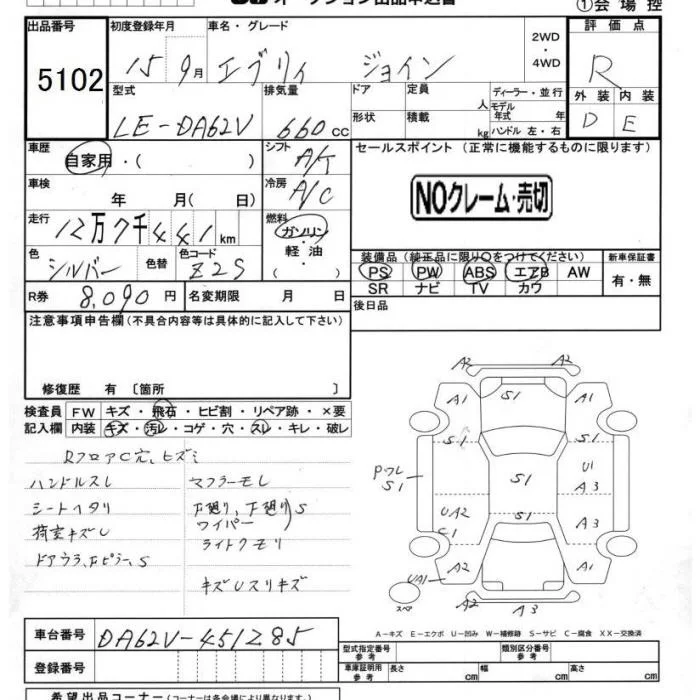 オークション出品申込書
①会場控
出品番号 初度登録年月 車名・グレード 2WD ・ 4WD 評価点
5102 15 9月 エブリィ ジョイン R
型式 排気量 ドア 定員 人 ディーラー・並行 外装 内装
LE-DA62V 660cc 形状 積載 kg モデル年式 年式 ハンドル 左・右 D E
車歴 自家用・( ) シフト A/T セールスポイント (正常に機能するものに限ります)
車検 年 月( 日) 冷房 A/C NOクレーム・売切
走行 12万7千441km 燃料 ガソリン・軽油 ( )
色 シルバー 色替 色コード Z2S 装備品 (純正品に限り○をつけてください) 新車保証書
PS PW ABS エアB AW 有・無
SR ナビ TV カワ
R券 8,090円 名変期限 月 日 後日品
注意事項申告欄 (不具合内容等は具体的に記入して下さい)
修復歴 有 〔箇所 〕
検査員 FW キズ・飛石・ヒビ割・リペア跡・×要
記入欄 内装 キズ・汚レ・コゲ・穴・スレ・キレ・破レ
RフロアC穴、ヒズミ
ハンドルスレ マフラーモレ
シートヘタリ 下廻り、下廻りS
ワイパー
荷室キズU ライトクモリ
ドアウラ、Fピラー、S
キズUスリキズ
A2 A2
A1 S1 A1
S1 S1
Pワレ S1 U1
S1 A3
UA2 S1 A3
C1
UA1 A1 A2
スペア A2 A3
A-キズ E-エクボ U-凹み W-補修跡 S-サビ C-腐食 XX-交換済
車台番号 DA62V-451285 型式指定番号 類別区分番号
登録番号 車庫証明用参考 長さ cm 幅 cm 高さ cm
希望出品コーナー (コーナーは各会場により異なります。)